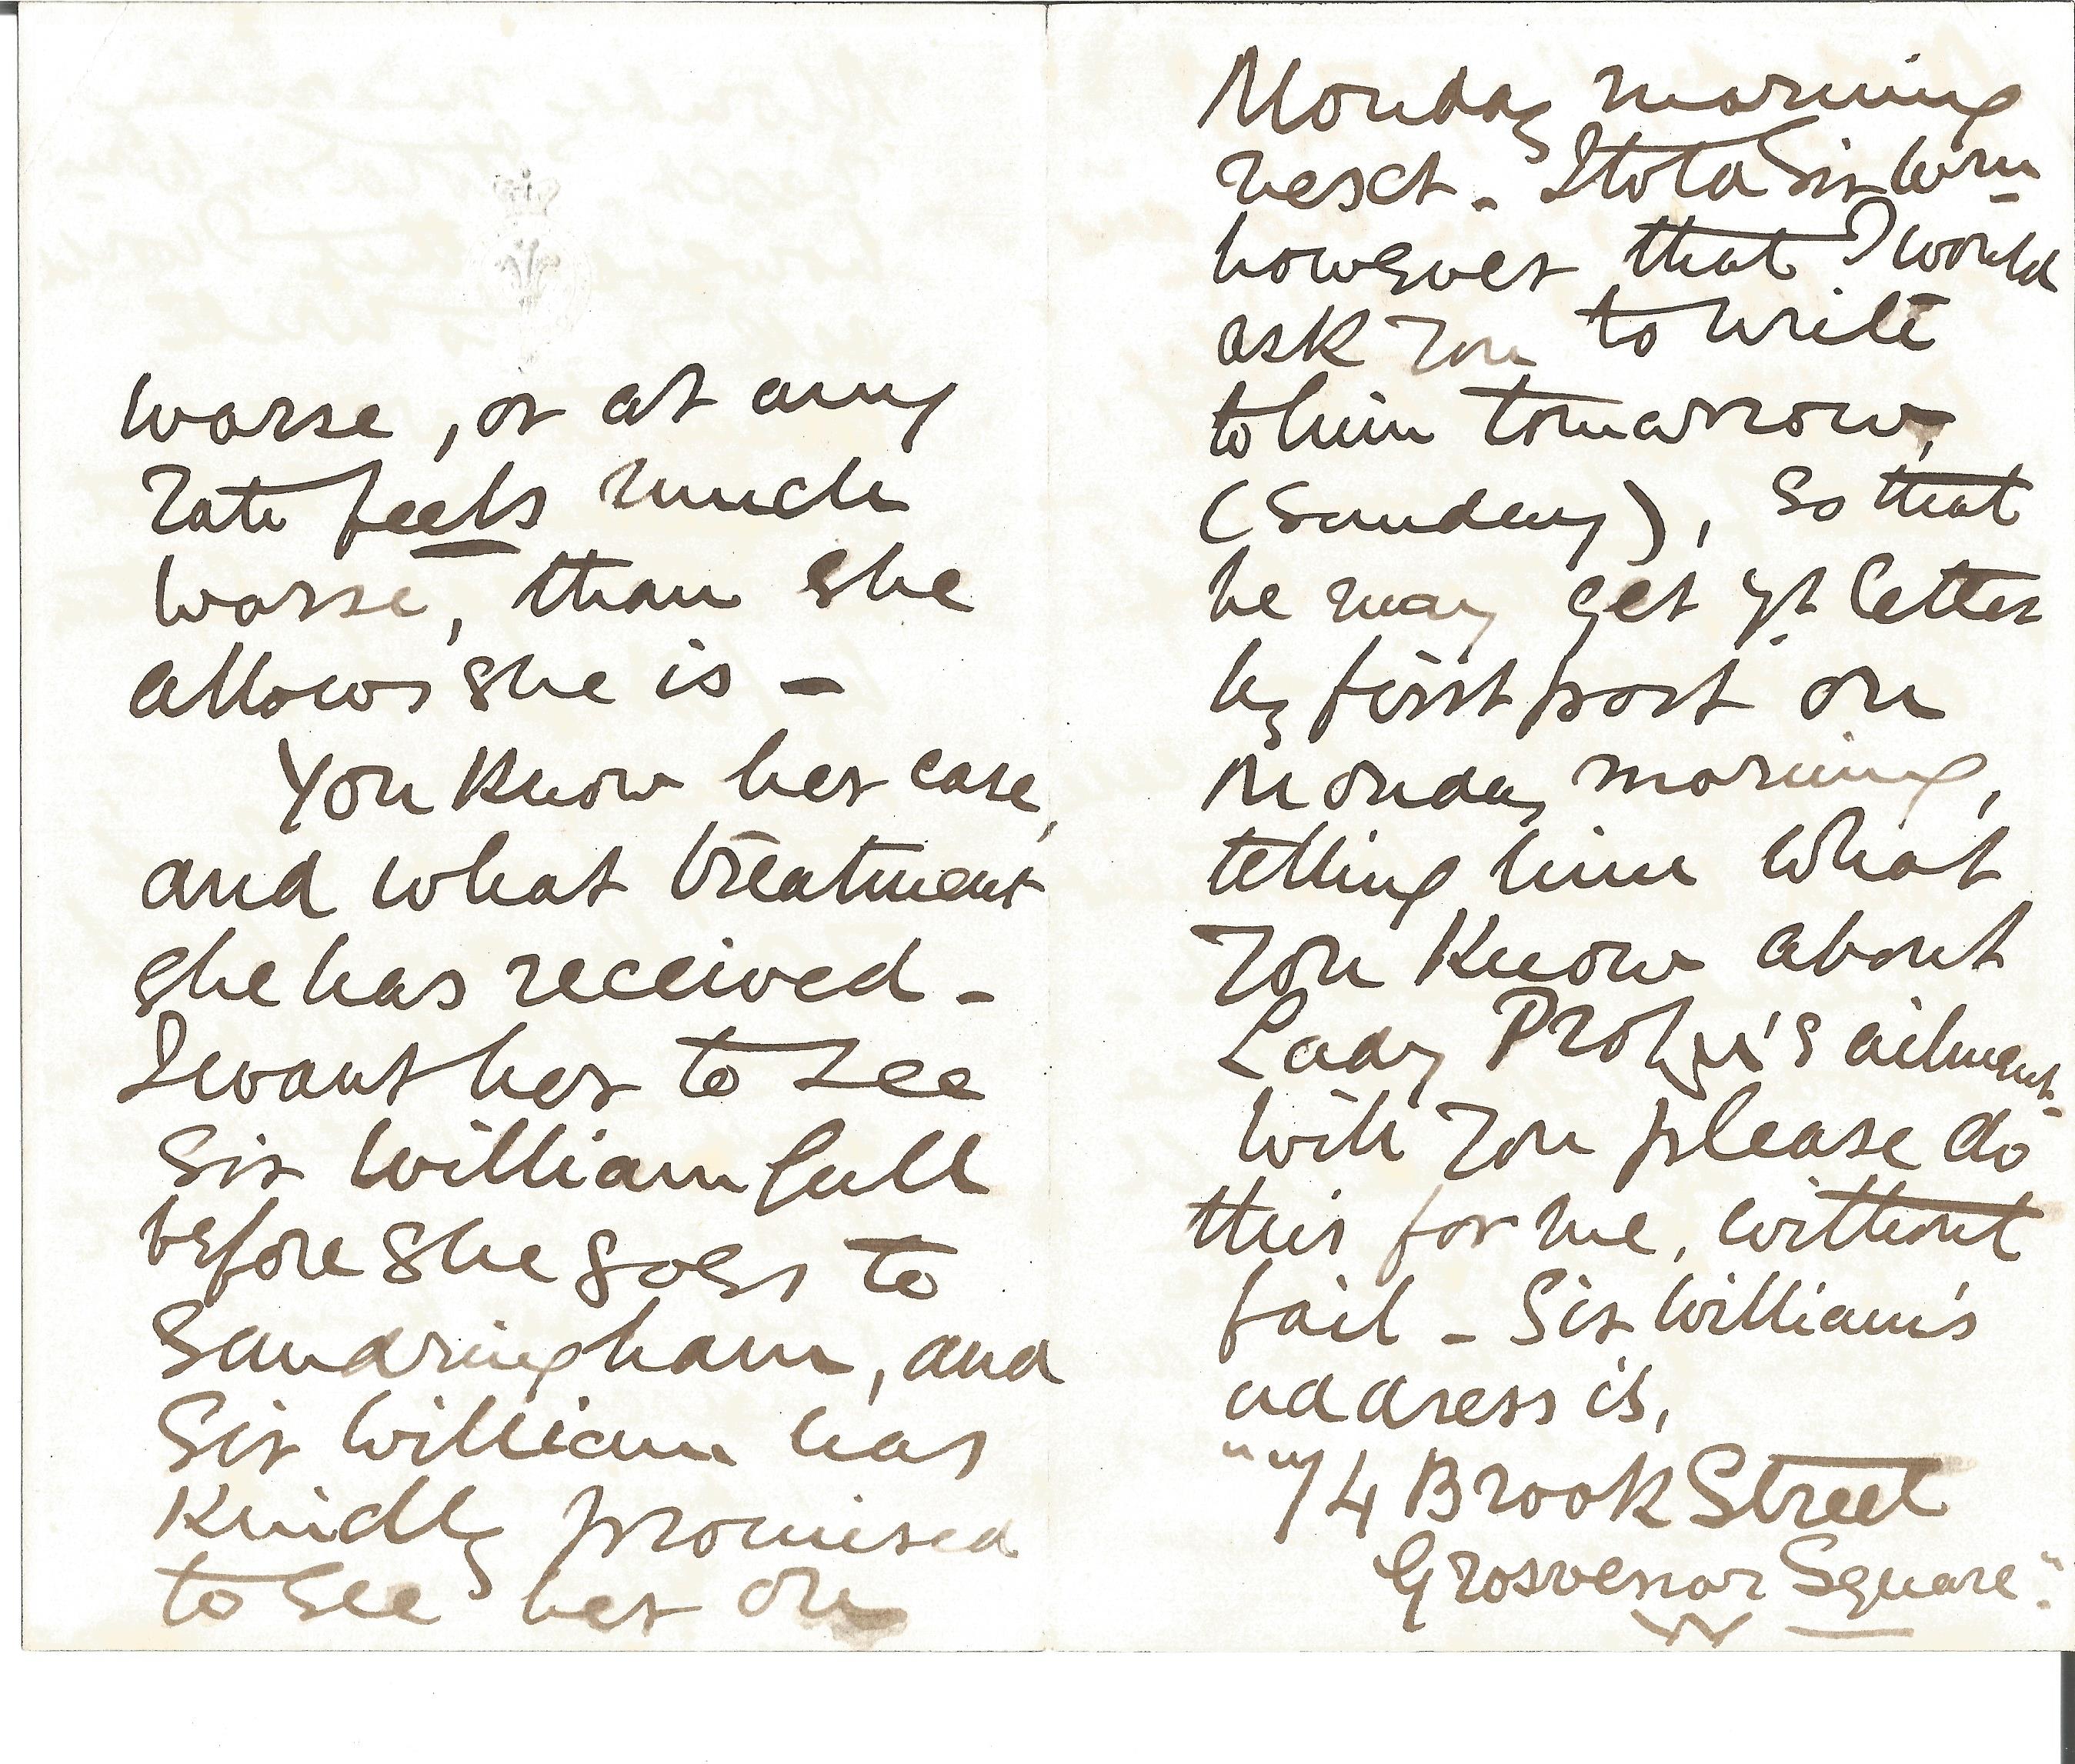 worse, or at any
rate feels much
worse, than she
allows she is -
You know her case,
and what treatment
she has received -
I want her to see
Sir William Gull
before she goes to
Sandringham, and
Sir William has
Kindly promised
to see her on
Monday morning
next - I told Sir Wm
however that I would
ask you to write
to him tomorrow,
(Sunday), so that
he may get yr letter
by first post on
Monday morning,
telling him what
you Know about
Lady Probyn's ailment.
Will you please do
this for me, without
fail - Sir William's
address is,
"74 Brook Street
Grosvenor Square".
W